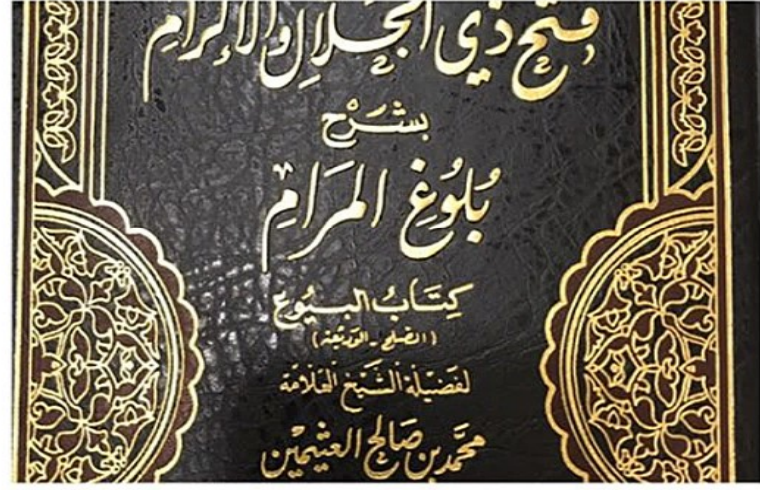 فتح ذي الجلال والإكرام
بشرح
بُلُوغِ المَرَامِ
كِتَابُ البُيُوعِ
(الصلح - الوديعة)
لفَضيلَة الشَّيْخ العَلّامَة
محمّد بن صَالح العثيمين